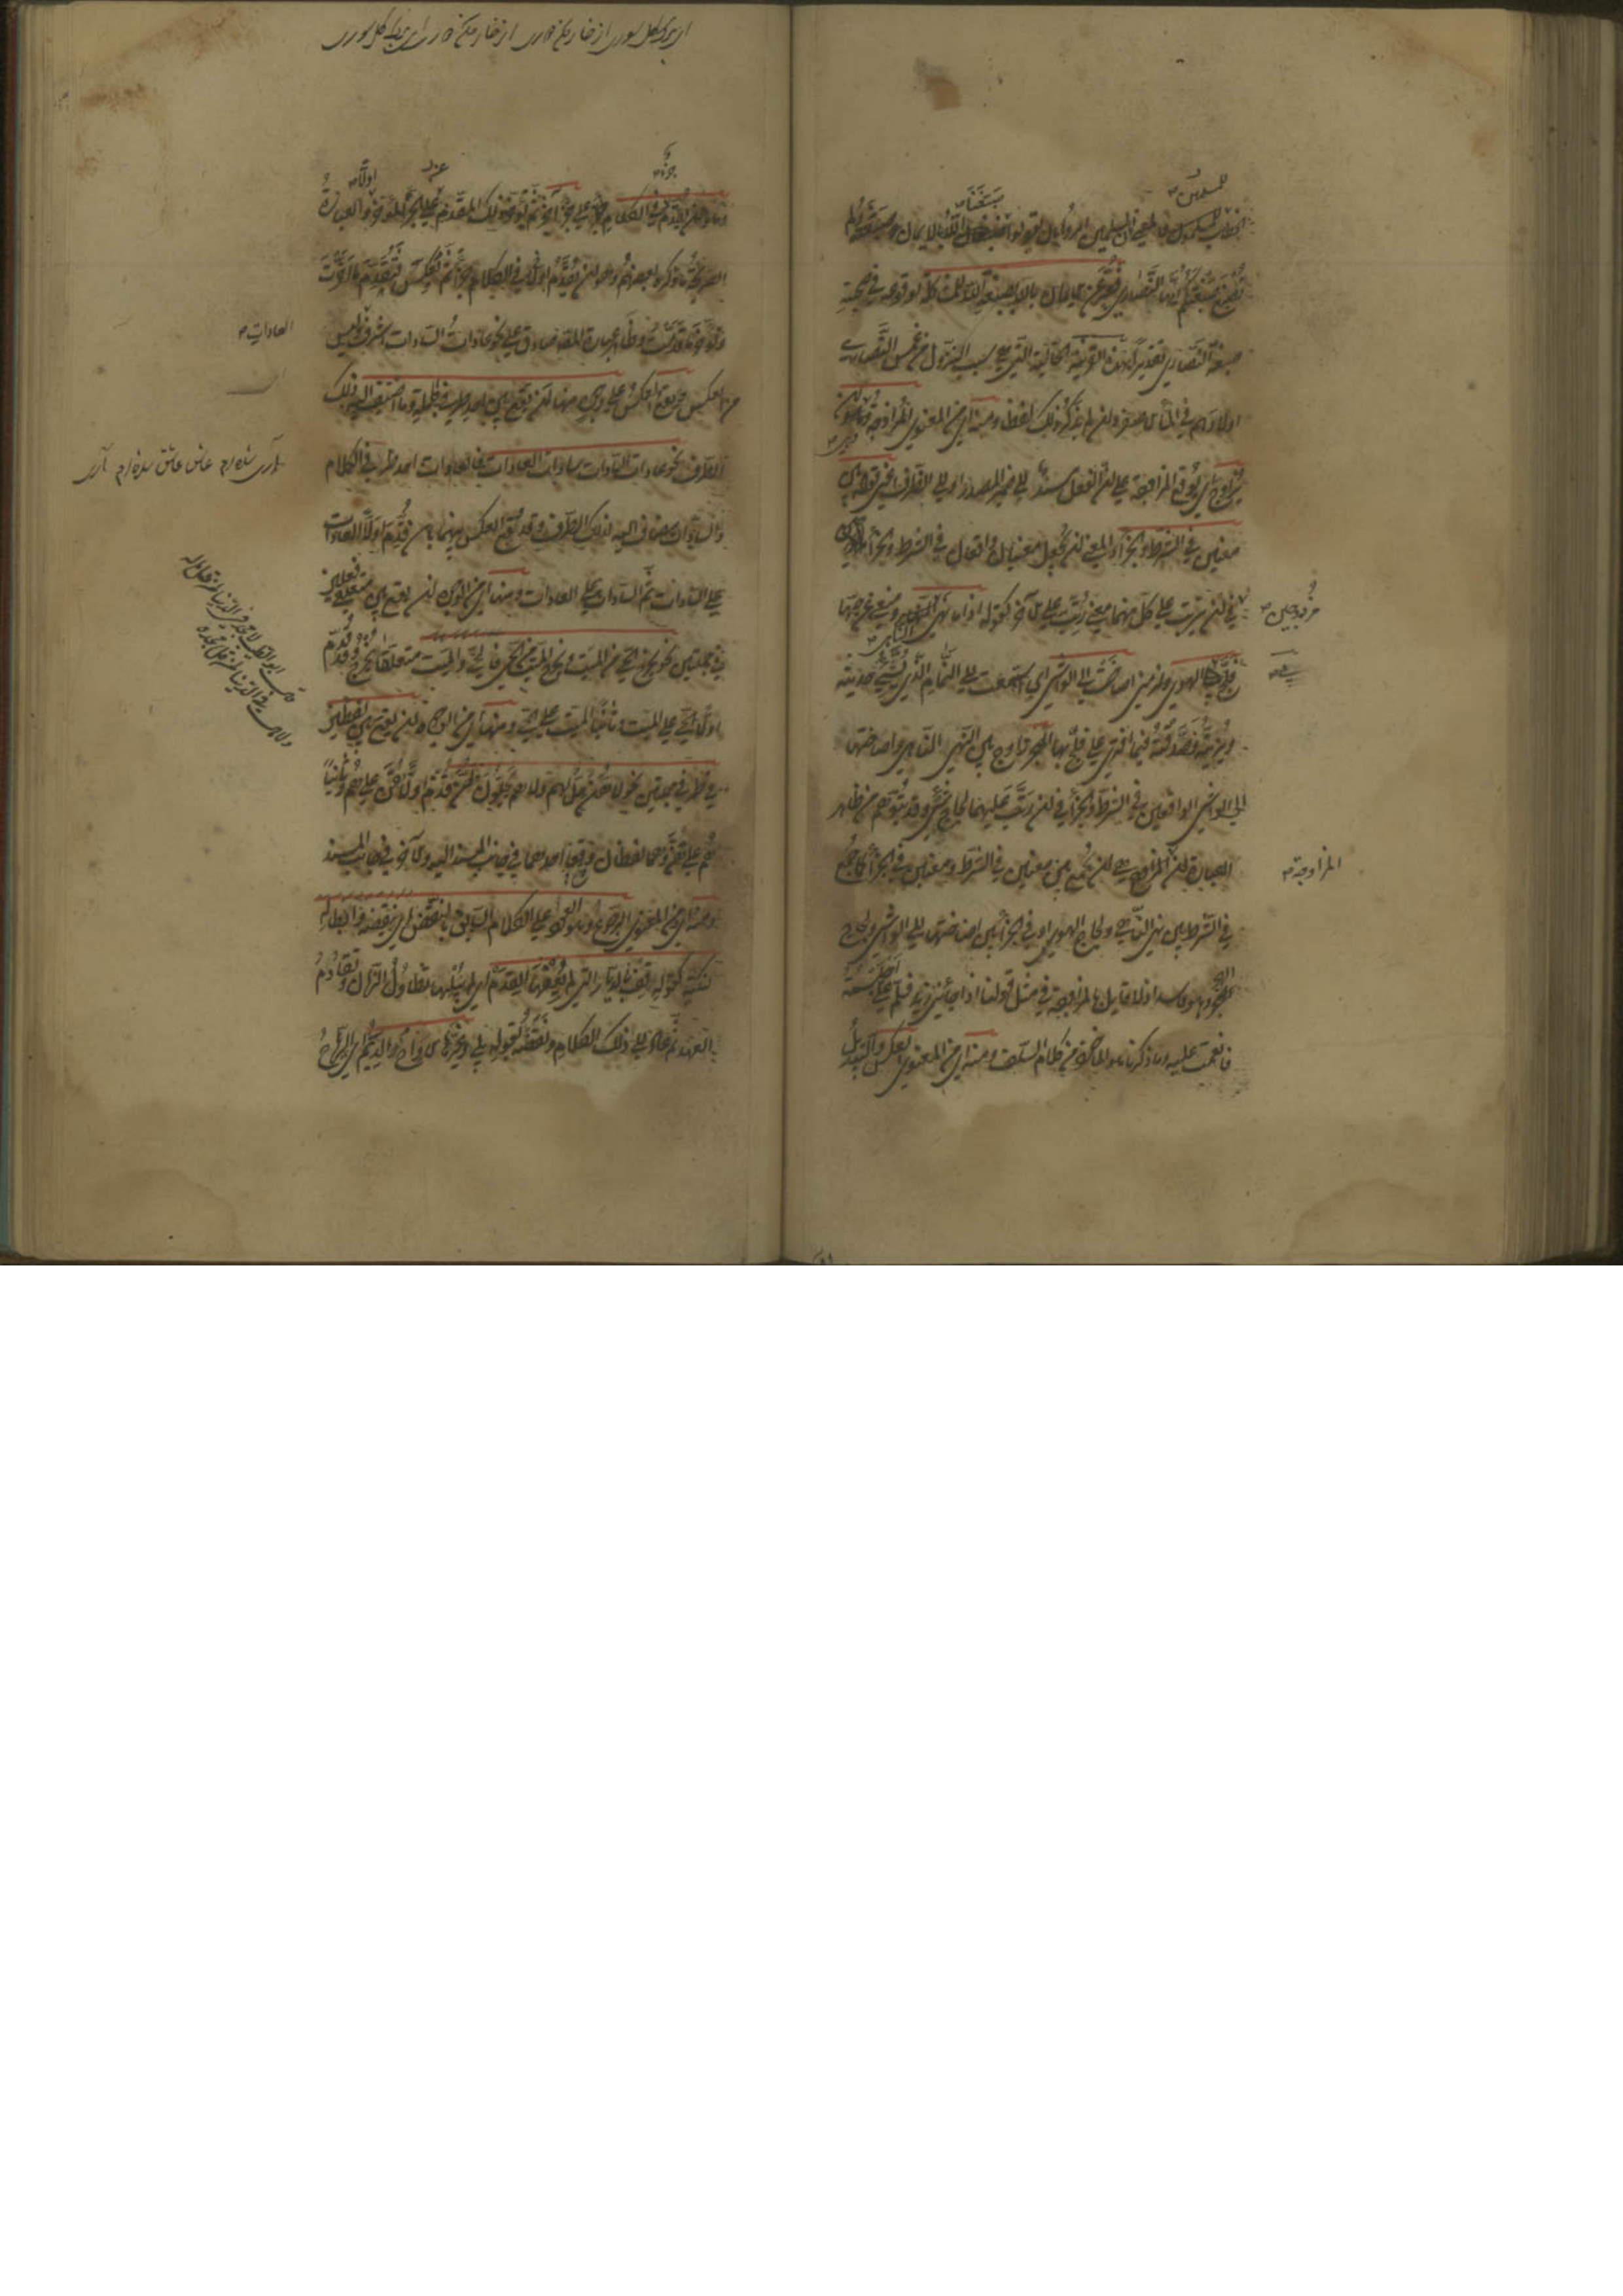 للمسلمين
صبغنا
الخطاب للمسلمين فالمعنى ان المسلمين امروا بان يقولوا صبغنا الله بالايمان صبغة ولم
نصبغ صبغتكم ايها النصارى فعبر عن الايمان بالله بصبغة الله للمشاكلة لوقوعه في صحبة
صبغة النصارى تقديرا بهذه القرينة الحالية التي هي سبب النزول من غمس النصارى
اولادهم في الماء الاصفر وان لم يذكر ذلك لفظا ومنه اي من المعنوي المزاوجة وهو ان
يزاوج اي يوقع المزاوجة على ان الفعل مسند الى ضمير المصدر او الى الظرف اعني قوله بين
معنيين في الشرط والجزاء والمعنى ان يجعل معنيان واقعان في الشرط والجزاء
مزدوجين
في ان يترتب على كل منهما معنى رتب على الآخر كقوله اذا ما نهى الناهي ومنعني عن حبها
فلج بي الهوى ولزمني اصاخت الى الواشي اي استمعت الى النمام الذي يشي حديثه
ويزينه فصدقته فيما افترى علي فلج بها الهجر زاوج بين نهي الناهي واصاختها
الى الواشي الواقعين في الشرط والجزاء في ان رتب عليهما لجاج شيء وقد يتوهم من ظاهر
العبارة ان المزاوجة هي ان يجمع بين معنيين في الشرط ومعنيين في الجزاء كما جمع
المزاوجة
في الشرط بين نهي الناهي ولجاج الهوى وفي الجزاء بين اصاختها الى الواشي ولجاج
الهجر وهو فاسد اذ لا قائل بالمزاوجة في مثل قولنا اذا جاءني زيد فسلم علي اجلسته
فانعمت عليه وما ذكرنا هو الماخوذ من كلام السلف ومنه اي من المعنوي العكس والتبديل
جزء
عند
اولا
وهو ان يقدم في الكلام جزء على جزء آخر ثم يؤخر ذلك المقدم على الجزء المؤخر والعبارة
الصريحة ما ذكره بعضهم وهو ان تقدم اولا في الكلام جزءا ثم تعكس فتقدم ما اخرت
وتؤخر ما قدمت وظاهر عبارة المصنف صادق على نحو عادات السادات اشرف وليس
العادات
من العكس ويقع العكس على وجوه منها ان يقع بين احد طرفي جملة وما اضيف اليه ذلك
الطرف نحو عادات السادات سادات العادات فالعادات احد طرفي الكلام
والسادات مضاف اليه لذلك الطرف وقد وقع العكس بينهما بان قدم اولا العادات
على السادات ثم السادات على العادات ومنها اي من الوجوه ان يقع بين متعلقي فعلين
في جملتين نحو يخرج الحي من الميت ويخرج الميت من الحي فالحي والميت متعلقا يخرج وقد قدم
اولا الحي على الميت وثانيا الميت على الحي ومنها اي من الوجوه ان يقع بين لفظين
في طرفي جملتين نحو لا هن حل لهم ولا هم يحلون لهن قدم اولا هن على هم وثانيا
هم على هن وهما لفظان وقع احدهما في جانب المسند اليه والآخر في جانب المسند
ومنه اي من المعنوي الرجوع وهو العود على الكلام السابق بالنقض اي بنقضه وابطاله
لنكتة كقوله قف بالديار التي لم يعفها القدم اي لم يبلها تطاول الزمان وتقادم
العهد ثم عاد الى ذلك الكلام ونقضه بقوله بلى وغيرها الارواح والديم اي الرياح